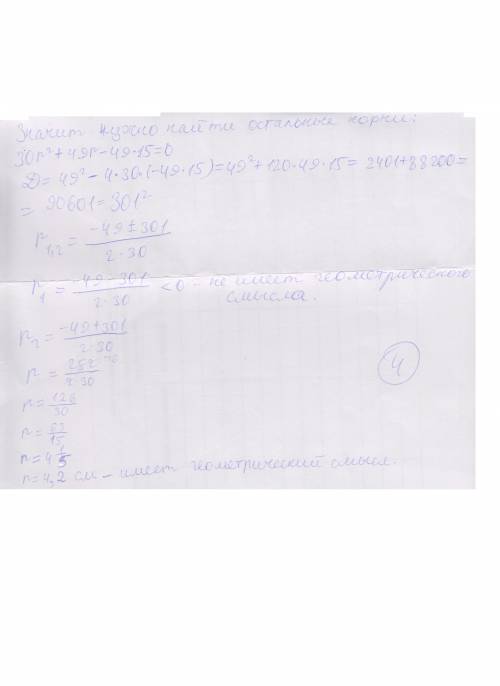 Значит нужно найти остальные корни:
30r²+49r-49·15=0
D=49²-4·30·(-49·15)=49²+120·49·15=2401+88200=
=90601=301²
r₁,₂=(-49±301)/(2·30)
r₁=(-49-301)/(2·30)<0 - не имеет геометрического
смысла.
r₂=(-49+301)/(2·30)
r=252/(2·30)
r=126/30
r=63/15
r=4 1/5
r=4,2 см - имеет геометрический смысл.
4